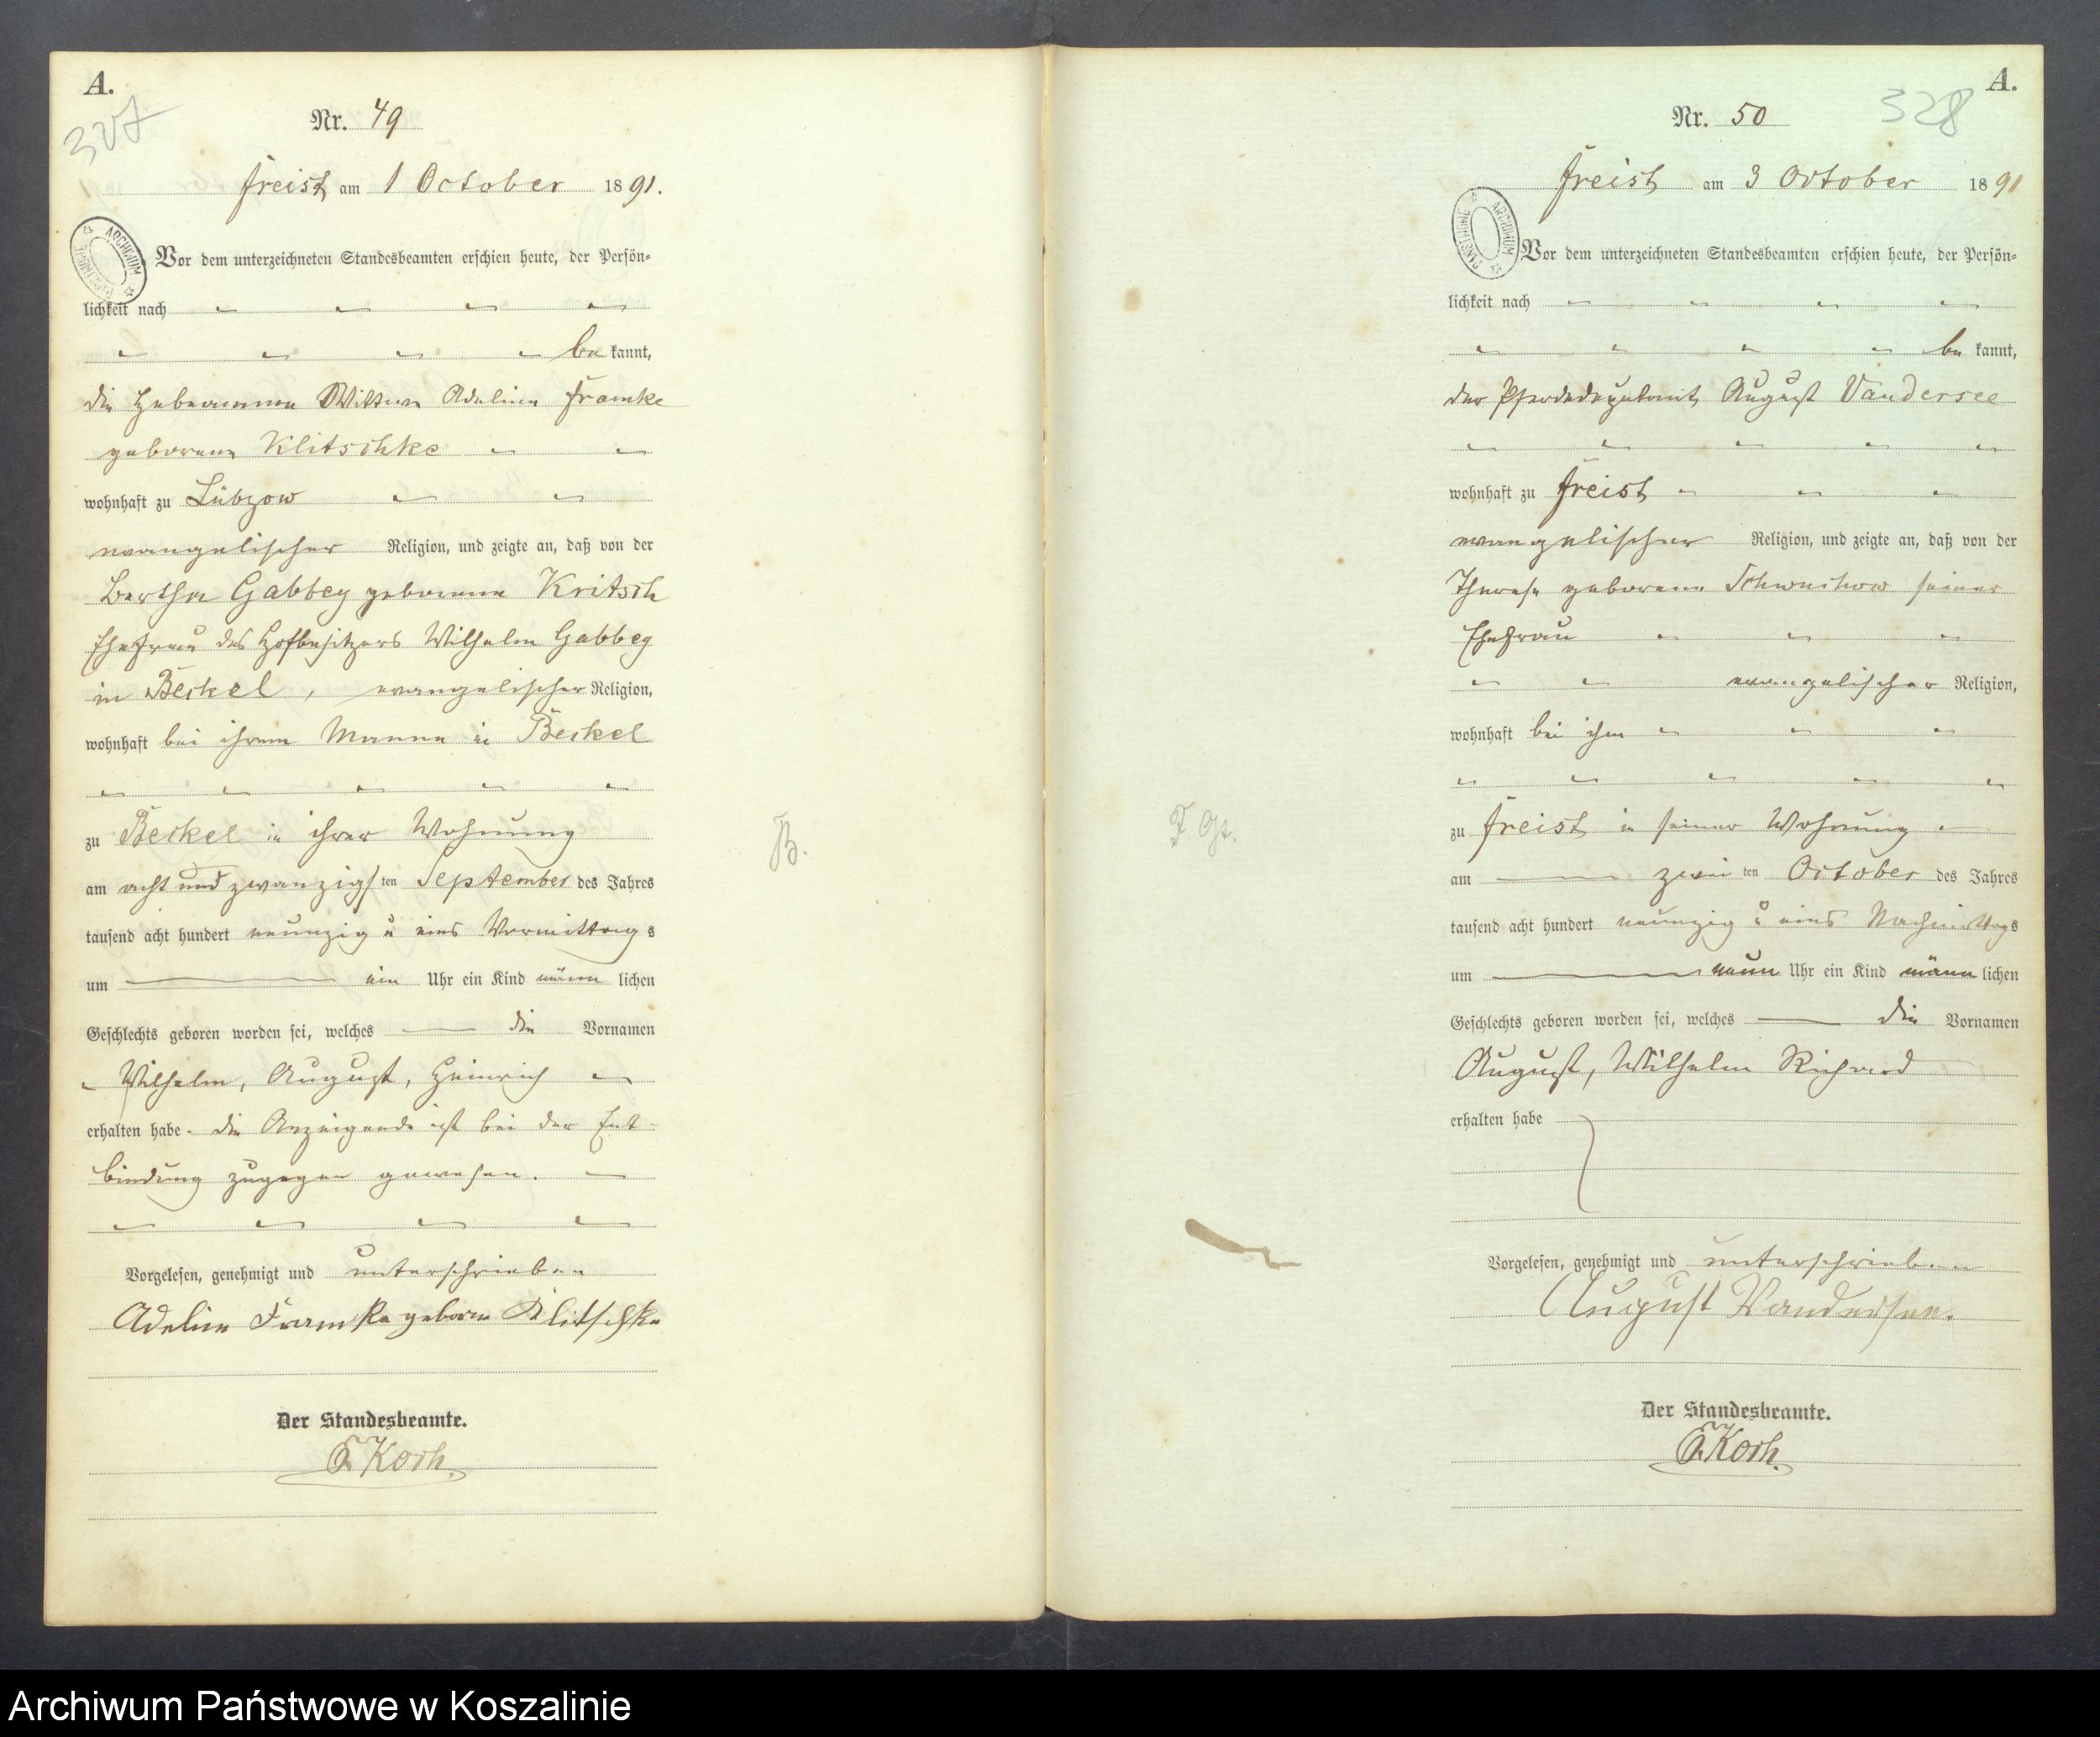 A.
327
Nr. 49
Freist am 1 October 1891.
ARCHIWUM PAŃSTWOWE
Vor dem unterzeichneten Standesbeamten erschien heute, der Persön-
lichkeit nach
be kannt,
die Hebeamme Wittwe Adeline Framke
geborene Klitschke
wohnhaft zu Lübzow
evangelischer Religion, und zeigte an, daß von der
Bertha Gabbey geborene Kritsch
Ehefrau des Hofbesitzers Wilhelm Gabbey
in Beckel, evangelischer Religion,
wohnhaft bei ihrem Manne in Beckel
zu Beckel in ihrer Wohnung
am acht und zwanzigsten September des Jahres
tausend acht hundert neunzig u eins Vormittags
um ein Uhr ein Kind männlichen
Geschlechts geboren worden sei, welches die Vornamen
Wilhelm, August, Heinrich
erhalten habe - die Anzeigende ist bei der Ent-
bindung zugegen gewesen.
Vorgelesen, genehmigt und unterschrieben
Adeline Framke geborne Klitschke
Der Standesbeamte.
Koch.
B.
A.
328
Nr. 50
Freist am 3 October 1891
ARCHIWUM PAŃSTWOWE
Vor dem unterzeichneten Standesbeamten erschien heute, der Persön-
lichkeit nach
be kannt,
der August Vandersee
wohnhaft zu Freist
evangelischer Religion, und zeigte an, daß von der
Therese geborene Schwuchow seiner
Ehefrau
evangelischer Religion,
wohnhaft bei ihm
zu Freist in seiner Wohnung
am zweiten October des Jahres
tausend acht hundert neunzig u eins Nachmittags
um neun Uhr ein Kind männlichen
Geschlechts geboren worden sei, welches die Vornamen
August, Wilhelm Richard
erhalten habe
Vorgelesen, genehmigt und unterschrieben
August Vandersee.
Der Standesbeamte.
Koch.
F. Gt.
Archiwum Państwowe w Koszalinie